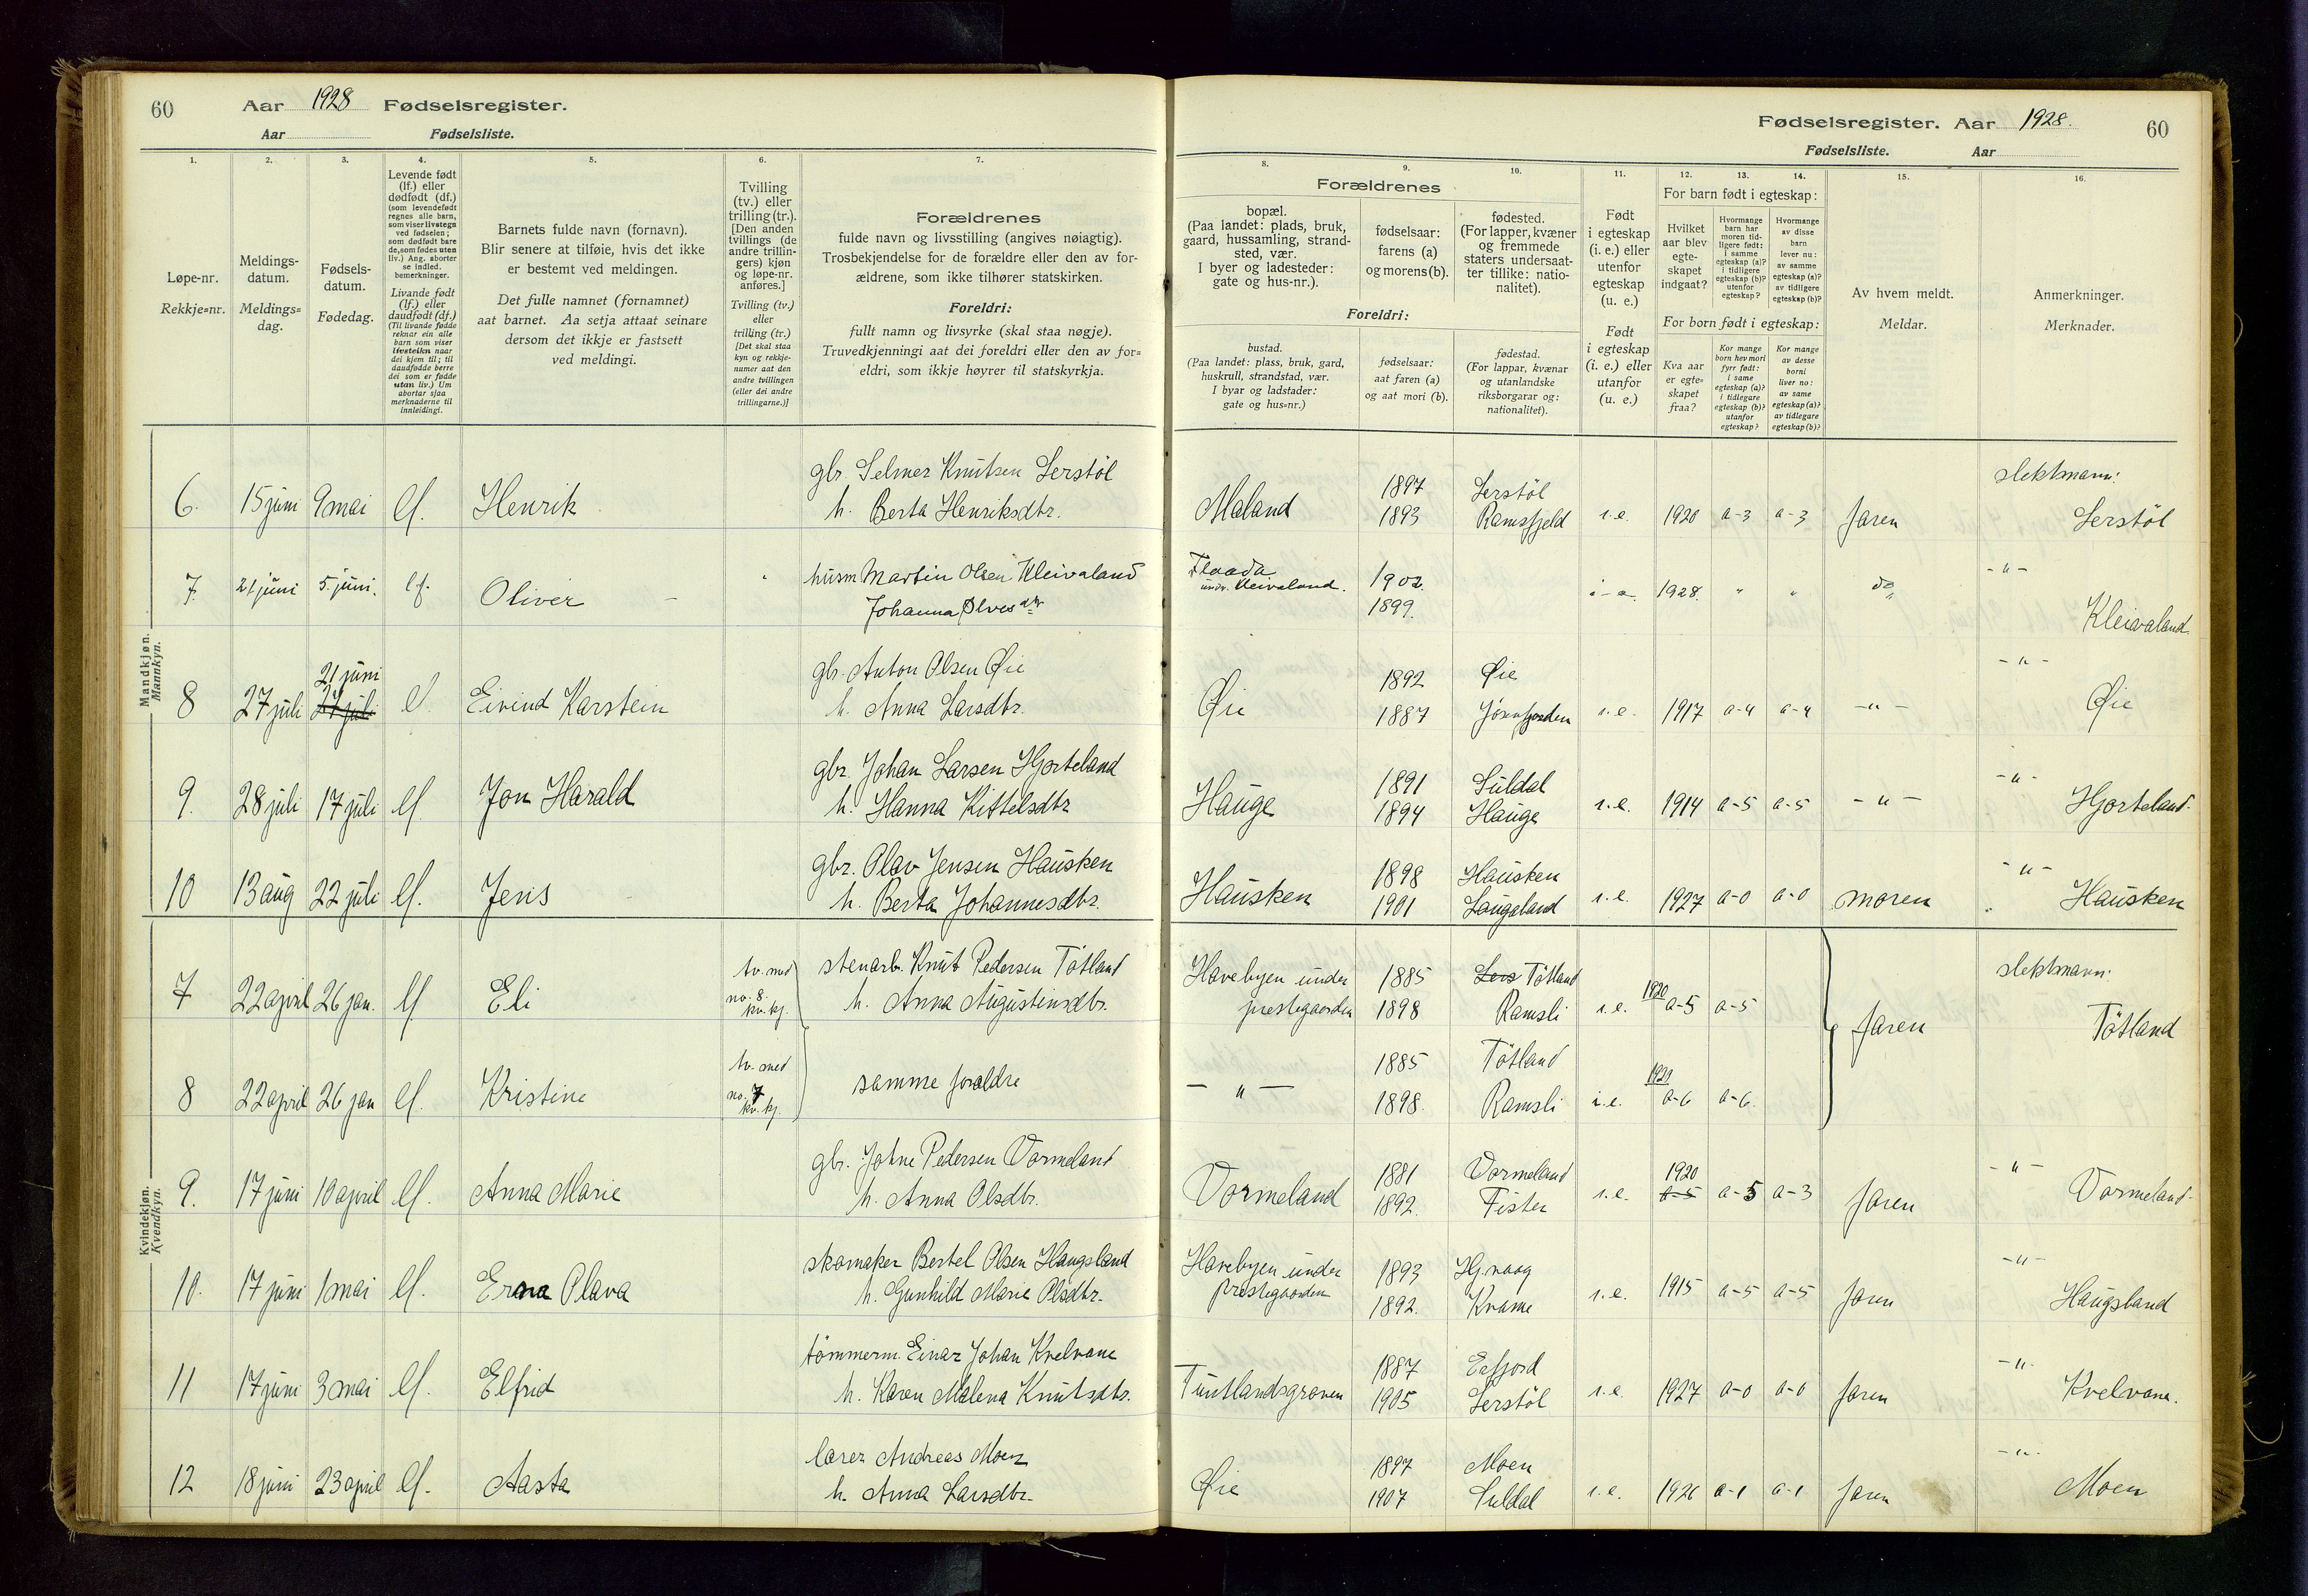 60 Aar 1928 Fødselsregister.
Aar Fødselsliste.
1. 2. 3. 4. 5. 6. 7.
Løpe-nr.
Rekkje=nr.
Meldings-
datum.
Meldings=
dag.
Fødsels-
datum.
Fødedag.
Levende født
(lf.) eller
dødfødt (df.)
(som levendefødt
regnes alle barn,
som viser livstegn
ved fødselen;
som dødfødt bare
de, som fødes uten
liv.) Ang. aborter
se indled.
bemerkninger.
Livande født
(lf.) eller
daudfødt (df.)
(Til livande fødde
reknar ein alle
barn som viser
livsteikn naar
dei kjem til; til
daudfødde berre
dei som er fødde
utan liv.) Um
abortar sjaa
merknaderne til
innleidingi.
Barnets fulde navn (fornavn).
Blir senere at tilføie, hvis det ikke
er bestemt ved meldingen.
Det fulle namnet (fornamnet)
aat barnet. Aa setja attaat seinare
dersom det ikkje er fastsett
ved meldingi.
Tvilling
(tv.) eller
trilling (tr.).
[Den anden
tvillings (de
andre trillin-
gers) kjøn
og løpe-nr.
anføres.]
Tvilling (tv.)
eller
trilling (tr.)
[Det skal staa
kyn og rekkje-
numer aat den
andre tvillingen
(eller dei andre
trillingarne.)]
Forældrenes
fulde navn og livsstilling (angives nøiagtig).
Trosbekjendelse for de forældre eller den av for-
ældrene, som ikke tilhører statskirken.
Foreldri:
fullt namn og livsyrke (skal staa nøgje).
Truvedkjenningi aat dei foreldri eller den av for=
eldri, som ikkje høyrer til statskyrkja.
Mandkjøn.
Mannkyn.
6. 15 juni 9 mai lf. Henrik gbr. Selmer Knutsen Lerstöl
h. Berta Henriksdtr.
7. 21 juni 5 juni. lf. Oliver husm Martin Olsen Kleivaland
Johanna Olvesdtr
8 27 juli 21 juni lf. Eivind Karstein gbr. Anton Olsen Øie
h. Anna Larsdtr.
9. 28 juli 17 juli lf. Jon Harald gbr. Johan Larsen Hjorteland
h. Hanna Kittelsdtr
10 13 aug 22 juli lf. Jens gbr. Olav Jensen Hausken
h. Berta Johannesdtr.
Kvindekjøn.
Kvendkyn.
7 22 april 26 jan. lf Eli tv. med no. 8. kv. kj. stenarb. Knut Pedersen Tötland
h. Anna Augustinsdtr.
8 22 april 26 jan lf. Kristine tv. med no. 7 kv. kj. samme foraldre
9. 17 juni 10 april lf. Anna Marie gbr. Johne Pedersen Vormeland
h. Anna Olsdtr.
10. 17 juni 1 mai lf. Erna Olava skomaker Bertel Olsen Haugsland
h. Gunhild Marie Olsdtr.
11 17 juni 3 mai lf. Elfrid tömmerm. Einar Johan Kvelvane
h. Karen Malena Knutsdtr.
12 18 juni 23 april lf. Aasta lærer Andreas Moen
h. Anna Larsdtr.
Fødselsregister. Aar 1928. 60
Fødselsliste. Aar
8. 9. 10. 11. 12. 13. 14. 15. 16.
Forældrenes
bopæl.
(Paa landet: plads, bruk,
gaard, hussamling, strand-
sted, vær.
I byer og ladesteder:
gate og hus-nr.).
fødselsaar:
farens (a)
og morens (b).
fødested.
(For lapper, kvæner
og fremmede
staters undersaat-
ter tillike: natio-
nalitet).
Foreldri:
bustad.
(Paa landet: plass, bruk, gard,
huskrull, strandstad, vær.
I byar og ladstader:
gate og hus=nr.)
fødselsaar:
aat faren (a)
og aat mori (b).
fødestad.
(For lappar, kvænar
og utanlandske
riksborgarar og:
nationalitet).
Født
i egteskap
(i. e.) eller
utenfor
egteskap
(u. e.)
Født
i egteskap
(i. e.) eller
utanfor
(u. e.)
For barn født i egteskap:
Hvilket
aar blev
egte-
skapet
indgaat?
Hvormange
barn har
moren tid-
ligere født:
i samme
egteskap (a)?
i tidligere
egteskap (b)?
utenfor
egteskap?
Hvormange
av disse
barn
lever nu:
av samme
egteskap (a)?
av tidligere
egteskap (b)?
For born født i egteskap:
Kva aar
er egte=
skapet
fraa?
Kor mange
born hev mori
fyrr født:
i same
egteskap (a)?
i tidlegare
egteskap (b)?
utanfor
egteskap?
Kor mange
av desse
borni
liver no:
av same
egteskap (a)?
av tidlegare
egteskap (b)?
Av hvem meldt.
Meldar.
Anmerkninger.
Merknader.
Maland 1897 1893 Lerstöl Ramsfjeld i.e. 1920 a-3 a-3 faren slektsnavn: Lerstöl
Flaada
undr. Kleivaland. 1902. 1899. 1928. " " do -"- Kleivaland
Øie 1892 1887 Øie Jösenfjorden i.e. 1917 a-4 a-4 -"- -"- Øie
Hauge 1891 1894 Suldal Hauge i.e. 1914 a-5 a-5 -"- -"- Hjorteland.
Hausken 1898 1901 Hausken Langaland i.e. 1927 a-0 a-0 moren -"- Hausken
Havebyen under
prestegaarden 1885 1898 Tötland Ramsli i.e. 1920 a-5 a-5 faren slektsnavn: Tötland
-"- 1885 1898. Tötland Ramsli i.e. 1920 a-6 a-6
Vormeland 1881 1892. Vormeland Fister i.e. 1920 a-5 a-5 a-3 faren -"- Vormeland.
Havebyen under
prestegaarden 1893 1892. Hj.vaag Kvame i.e. 1915 a-5 a-5 faren -"- Haugsland
Tuntlandsgraven 1887 1905 Lerstöl i.e. 1927 a-0 a-0 faren -"- Kvelvane.
Øie 1897 1907 Moen Suldal i.e. 1926 a-1 a-1 faren -"- Moen